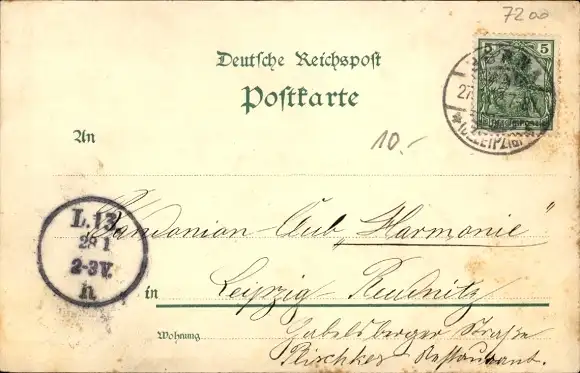 7200
Deutsche Reichspost
Postkarte
5
27.
(B. LEIPZIG)
An
10.-
L. 13
28 1
2-3 V.
n
Bandonion-Club „Harmonie"
in Leipzig Reudnitz
Wohnung Gabelsberger Straße
Plischkes Restaurant.